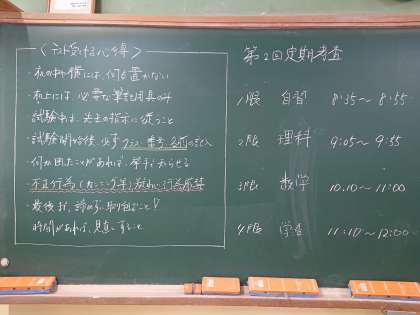 〈テスト受ける心得〉
・机の中や横には、何も置かない
・机上には、必要な筆記用具のみ
試験中は、先生の指示に従うこと
・試験開始後、必ずクラス、番号、名前の記入
何か困ったことがあれば、挙手で知らせる
・不正行為(カンニング等)
・最後まで、諦めずに取り組むこと!
時間があれば、見直しすること
第2回定期考査
1限 自習 8:35〜8:55
2限 理科 9:05〜9:55
3限 数学 10:10〜11:00
4限 学활 11:10〜12:00